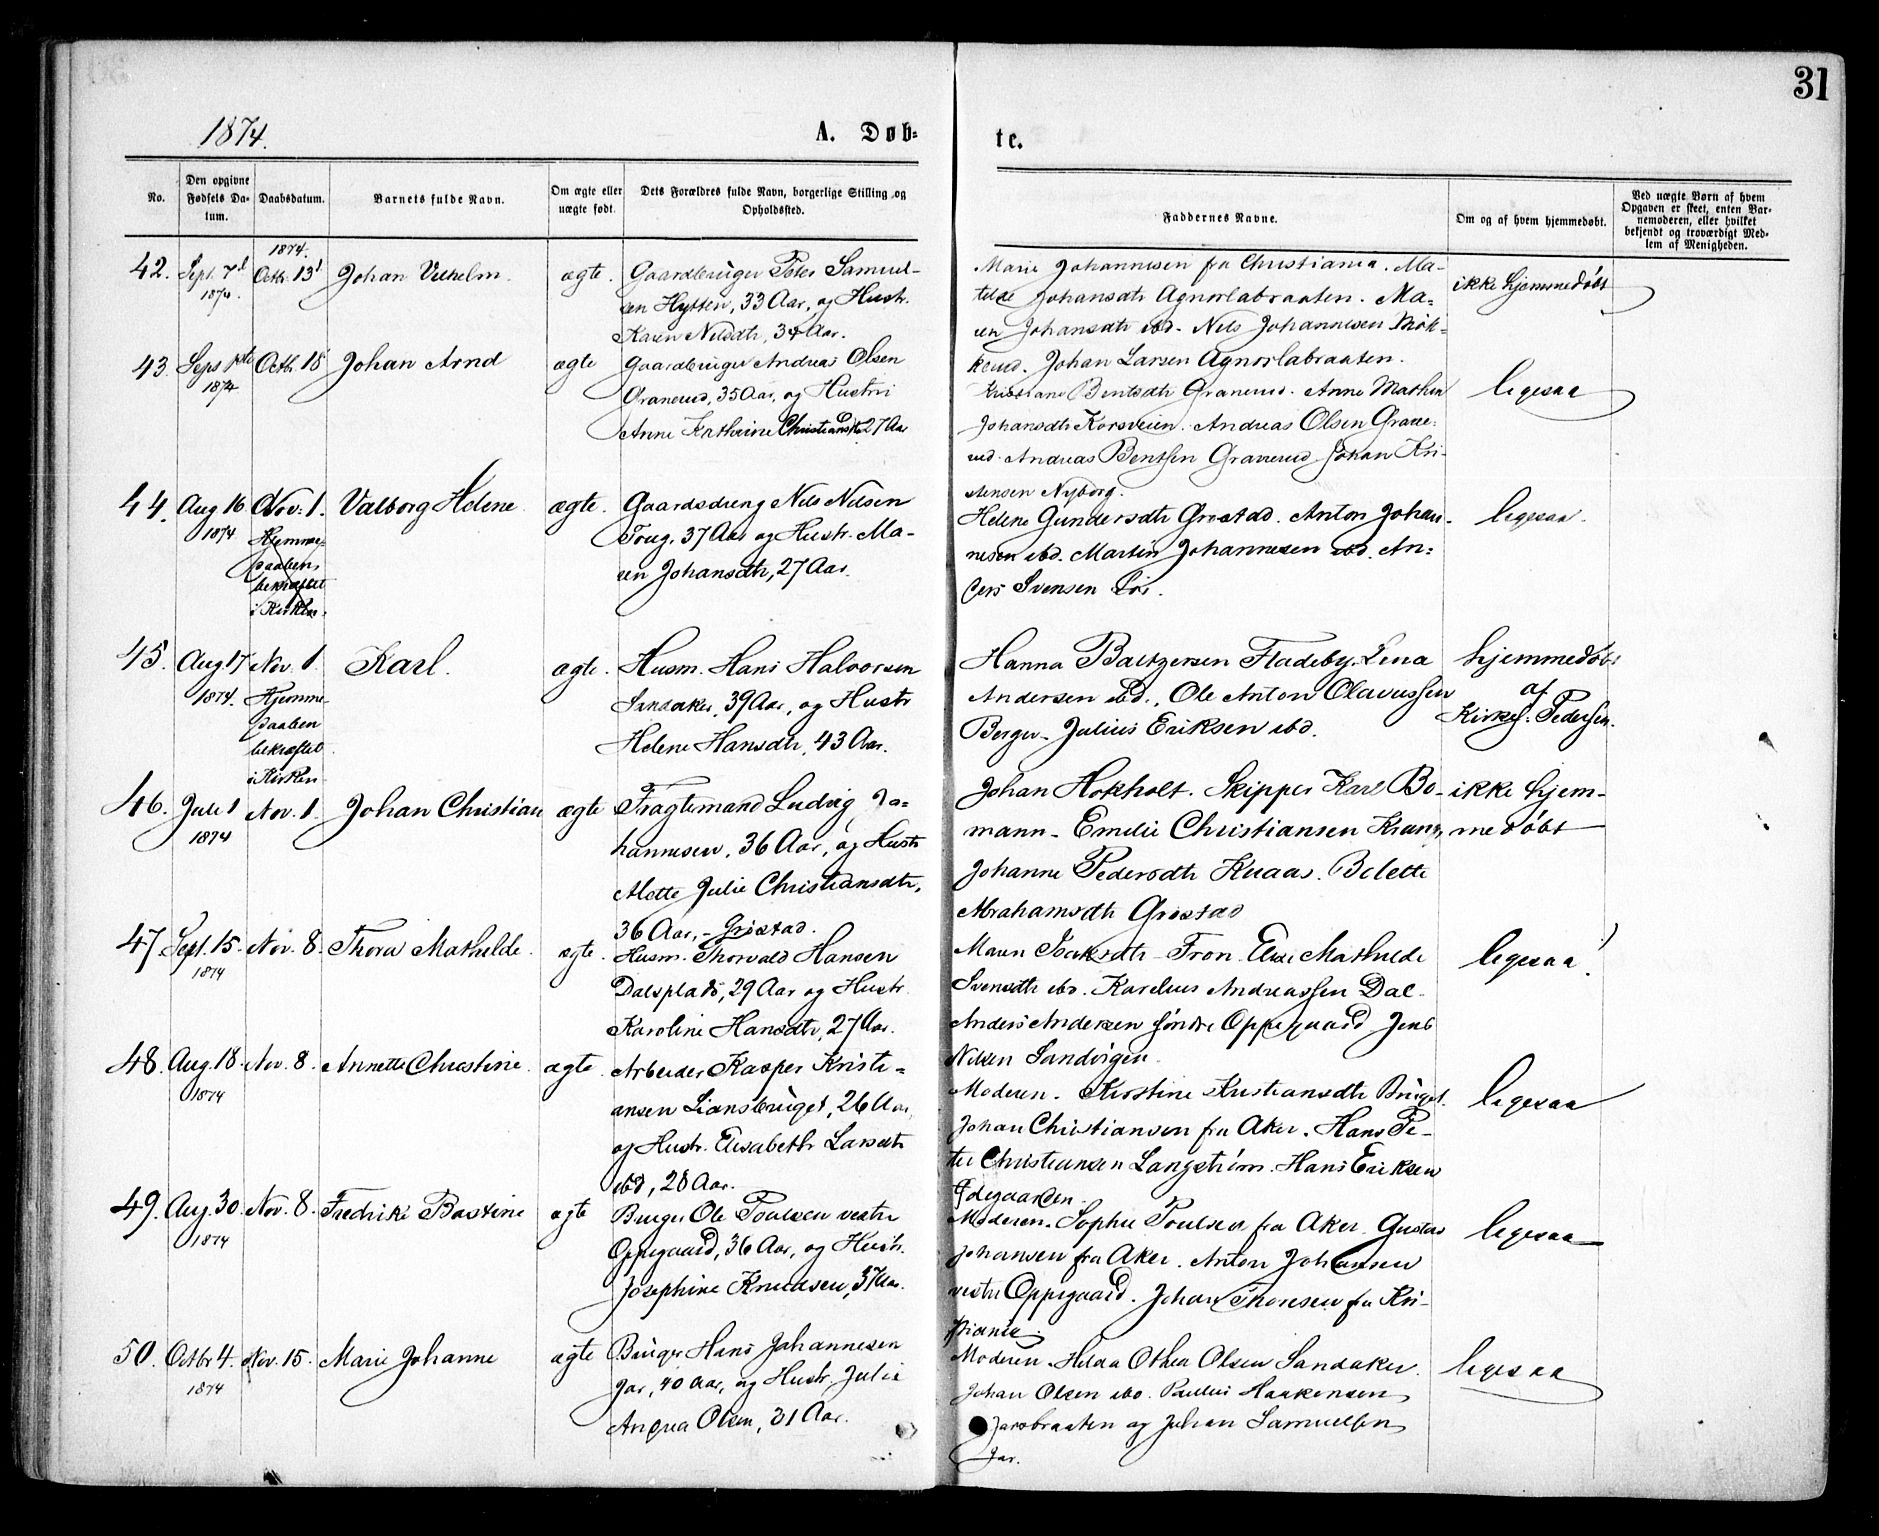 31
1874.
A. Døb-
te.
No.
Den opgivne Fødsels Da-
tum.
Daabsdatum.
Barnets fulde Navn.
Om ægte eller
uægte født.
Dets Forældres fulde Navn, borgerlige Stilling og
Opholdssted.
Faddernes Navne.
Om og af hvem hjemmedøbt.
Ved uægte Børn af hvem
Opgaven er skeet, enten Bar-
nemoderen, eller hvilket
bekjendt og troværdigt Med-
lem af Menigheden.
42. Sept. 7d 1874. 1874. Octb. 13d Johan Vilhelm. ægte.
Gaardbruger Peter Samuel-
sen Hytten, 33 Aar, og Hustr.
Karen Nilsdtr, 34 Aar.
Marie Johannesen fra Christiania. Ma-
tilde Johansdtr Agnorlabraaten. Ma-
ren Johansdtr ibd. Nils Johannesen Møk-
kerud. Johan Larsen Agnorlabraaten.
ikke hjemmedøbt
43. Sept 1874 Octb. 18 Johan Arnd ægte
Gaardbruger Andreas Olsen
Granerud, 35 Aar, og Hustru
Anne Kathrine Christiansdtr 27 Aar
Kristiane Bentsdtr Granerud. Anne Mathea
Johansdtr Korsveien. Andreas Olsen Grane-
rud. Andreas Bentsen Granerud. Johan Kri-
stensen Nyborg.
ligesaa
44. Aug 16 1874 Nov. 1. Valborg Helene. ægte.
Hjemme-
daaben
bekræftet
i Kirken.
Gaardsdreng Nils Nilsen
37 Aar og Hustr. Ma-
ren Johansdtr, 27 Aar.
Helene Gundersdtr Grøstad. Anton Johan-
nesen ibd. Martin Johannesen ibd. An-
ders Svensen
ligesaa.
45. Aug 17 1874. Nov. 1. Karl. ægte.
Hjemme-
daaben
bekræftet
i Kirken
Husm. Hans Halvorsen
Sandaker, 39 Aar, og Hustr
Helene Hansdtr, 43 Aar.
Hanna Baltzersen Fladeby. Lina
Andersen ibd., Ole Anton Olavussen
Berger. Julius Eriksen ibd.
hjemmedøbt
af
Kirkes. Pedersen.
46. Juli 1 1874 Nov. 1. Johan Christian ægte
Fragtemand Ludvig Jo-
hannesen, 36 Aar, og Hustr
Mette Julie Christiansdtr,
36 Aar, - Grøstad.
Johan Hokholt. Skipper Karl Bo-
mann. Emilie Christiansen
Johanne Pedersdtr Knaas. Bolette
Abrahamsdtr Grøstad
ikke hjem-
medøbt
47. Sept. 15. 1874 Nov. 8. Thora Mathilde. ægte.
Husm. Thorvald Hansen
Dalsplads, 29 Aar og Hustr.
Karoline Hansdtr, 27 Aar.
Maren Isaksdtr Fron. Else Mathilde
Svensdtr ibd. Karelius Andreassen Dal.
Anders Andersen søndre Oppegaard. Jens
Nilsen Sandvigen.
ligesaa.
48. Aug. 18. 1874 Nov. 8. Annette Christine. ægte.
Arbeider Kasper Kristi-
ansen Liansbruget, 26 Aar,
og Hustr. Elisabeth Larsdtr
ibd, 28 Aar.
Moderen. Kirstine Kristiansdtr Bruget.
Johan Christiansen fra Aker. Hans Pe-
ter Christiansen Langstrøm. Hans Eriksen
Ødegaarden.
ligesaa
49. Aug. 30. 1874 Nov. 8. Fredrike Bastine ægte
Bruger Ole Poulsen vestre
Oppegaard, 36 Aar, og Hustr.
Josephine Knudsen, 37 Aar.
Moderen. Sophie Poulsen fra Aker. Gustav
Johansen fra Aker. Anton Johansen
vestre Oppegaard. Johan Thoresen fra Kri-
stiania.
ligesaa
50. Octbr 4. 1874 Nov. 15. Marie Johanne ægte
Bruger Hans Johannesen
Jar, 40 Aar, og Hustr. Julie
Olsen, 31 Aar.
Moderen. Hilda Othea Olsen Sandaker.
Johan Olsen ibd. Paulus Haakensen
Jarsbraaten og Johan Samuelsen
Jar.
ligesaa